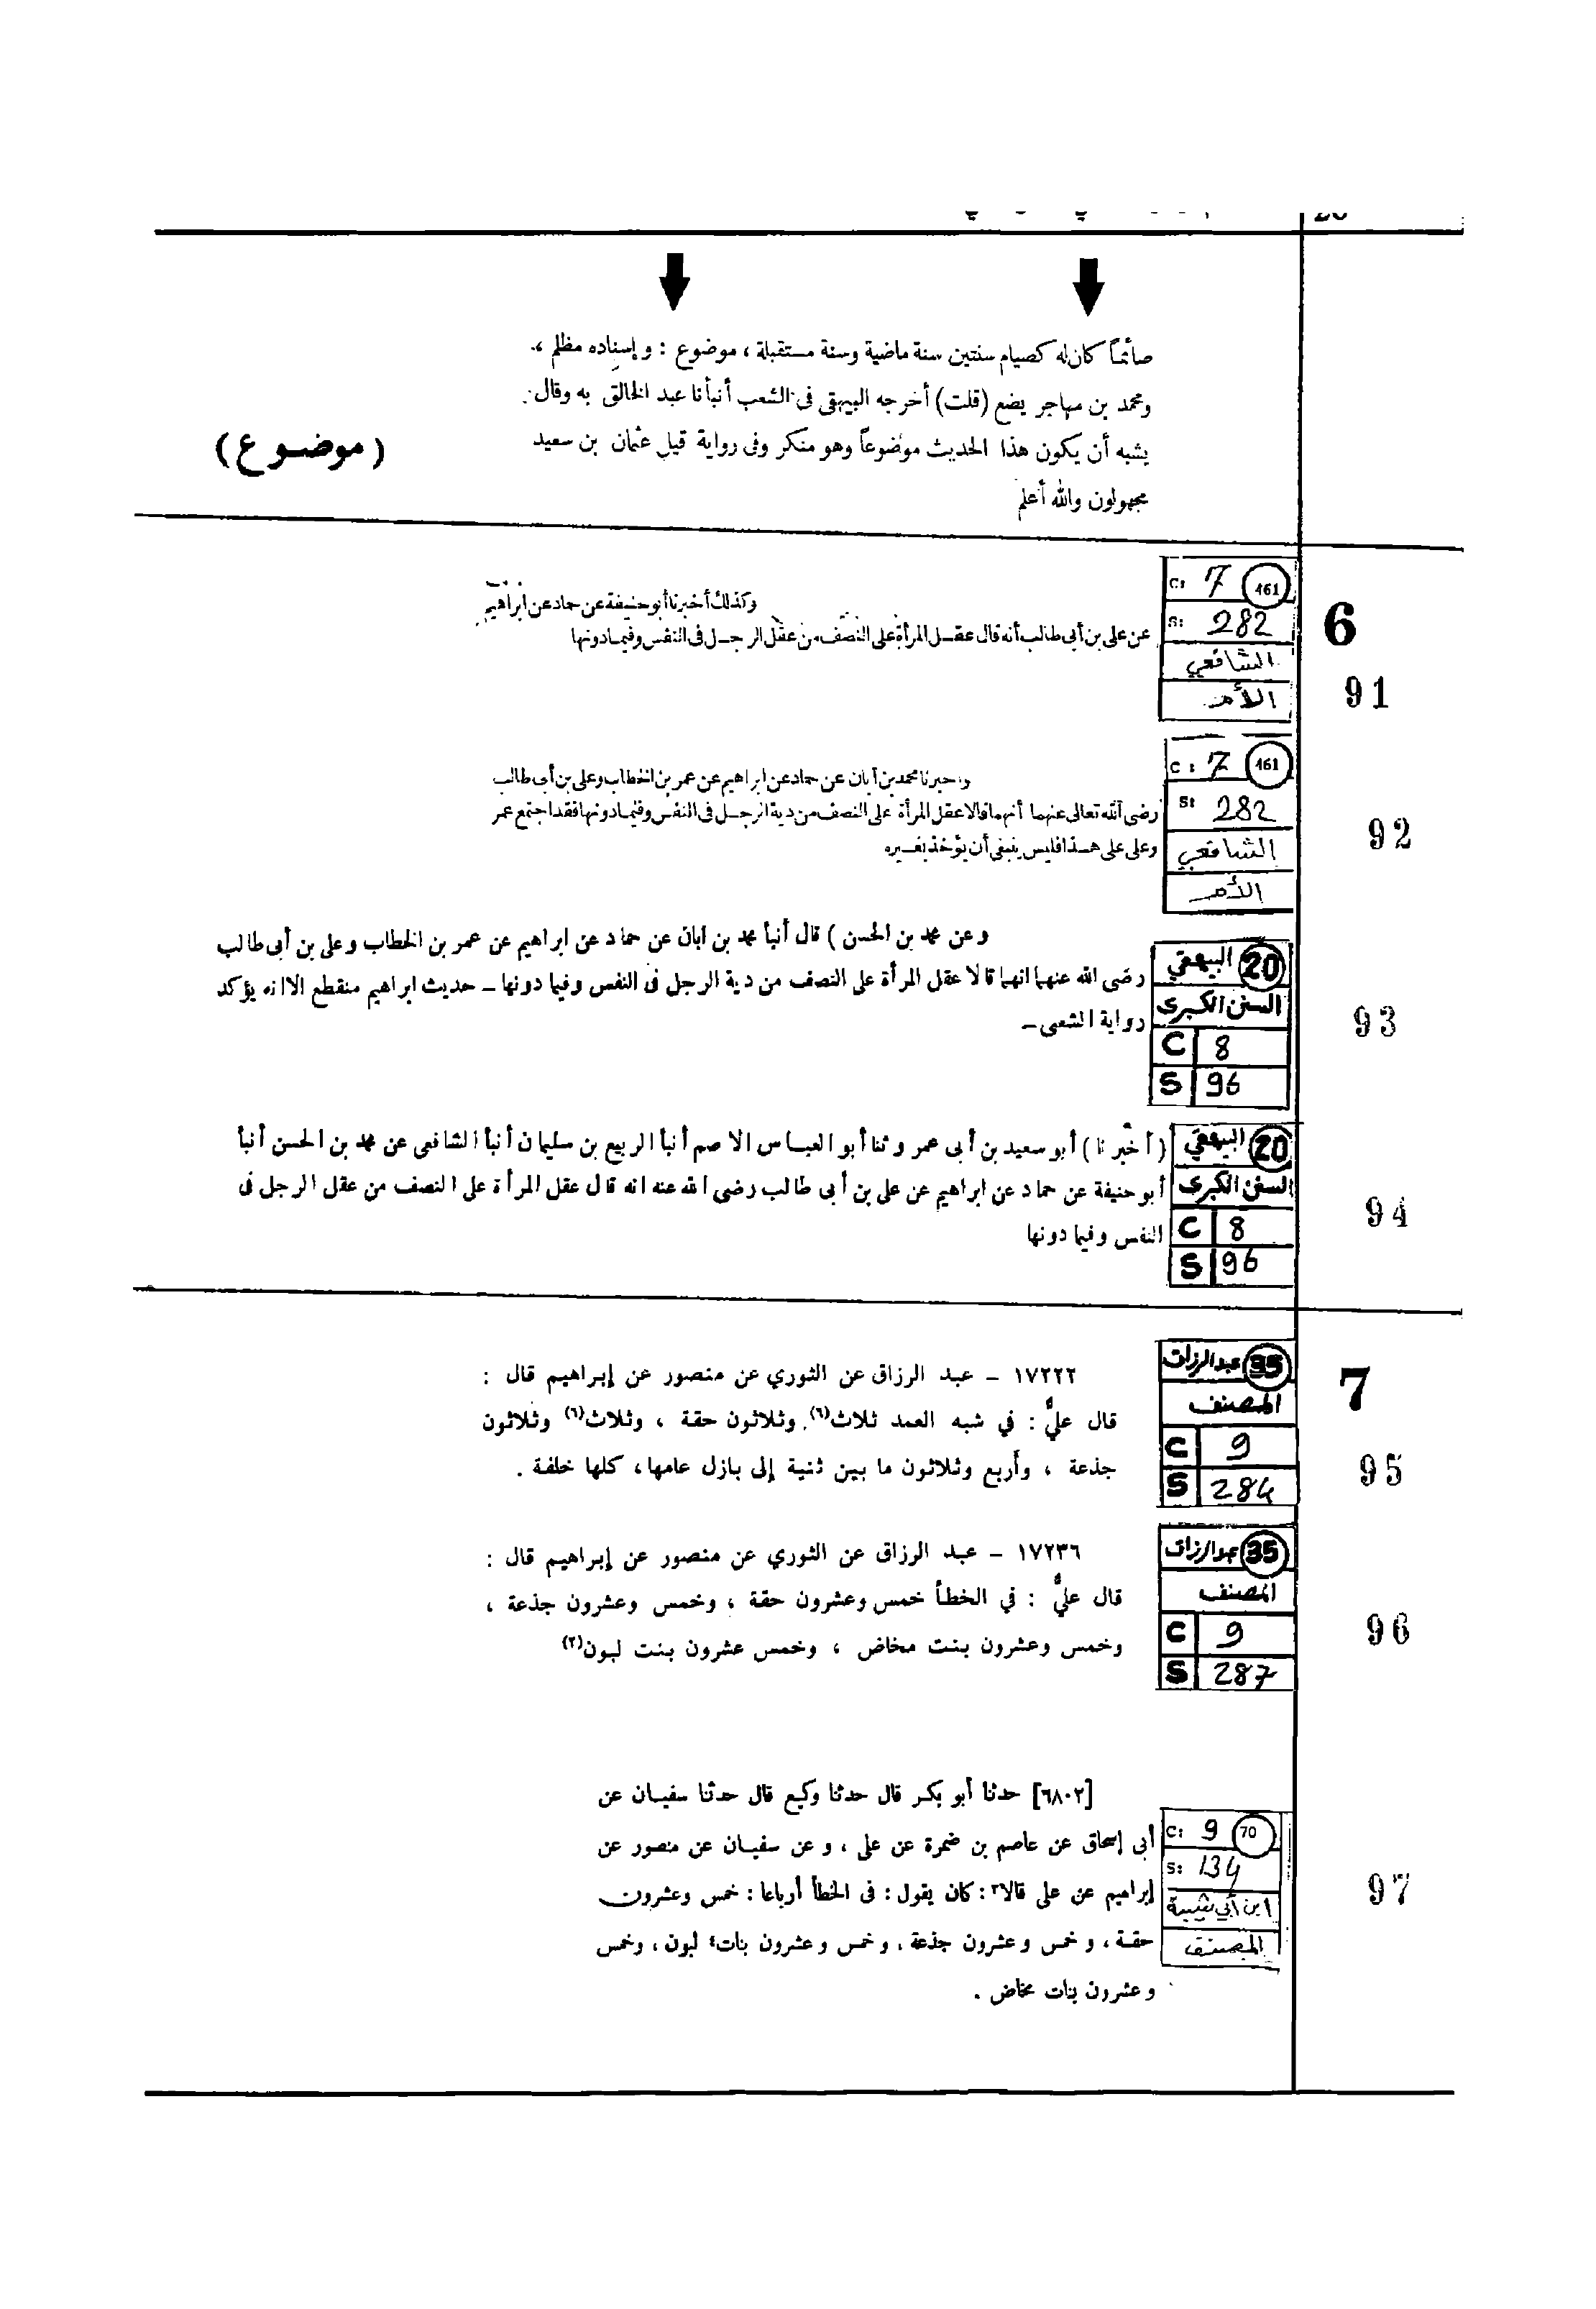 صائماً كان له كصيام سنتين سنة ماضية وسنة مستقبلة ، موضوع : وإسناده مظلم ،
ومحمد بن مهاجر يضع (قلت) أخرجه البيهقي في الشعب أنبأنا عبد الخالق به وقال
يشبه أن يكون هذا الحديث موضوعاً وهو منكر وفى رواية قبل عثمان بن سعيد
مجهولون والله أعلم
(موضوع)
6
C: 7 461
S: 282
الشافعي
الأم
91
وكذلك أخبرنا أبو حنيفة عن حماد عن ابراهيم
عن على بن أبى طالب أنه قال عقل المرأة على النصف من عقل الرجل فى النفس وفيما دونها
C: 7 461
S: 282
الشافعي
الأم
92
واخبرنا محمد بن أبان عن حماد عن ابراهيم عن عمر بن الخطاب وعلى بن أبى طالب
رضى الله تعالى عنهما أنهما قالا عقل المرأة على النصف من دية الرجل فى النفس وفيما دونها فقد اجتمع عمر
وعلى على هذا فليس ينبغى أن يؤخذ بغيره
20 البيهقي
السنن الكبرى
C 8
S 96
93
وعن محمد بن الحسن ) قال أنبأ محمد بن ابان عن حماد عن ابراهيم عن عمر بن الخطاب وعلى بن أبى طالب
رضى الله عنهما انهما قالا عقل المرأة على النصف من دية الرجل فى النفس وفيما دونها – حديث ابراهيم منقطع الا انه يؤكد
رواية الشعبى –
20 البيهقي
السنن الكبرى
C 8
S 96
94
( أخبرنا ) أبو سعيد بن أبى عمر وثنا أبو العباس الاصم أنبأ الربيع بن سليمان أنبأ الشافعى عن محمد بن الحسن أنبأ
أبو حنيفة عن حماد عن ابراهيم عن على بن أبى طالب رضى الله عنه انه قال عقل المرأة على النصف من عقل الرجل فى
النفس وفيما دونها
7
35 عبد الرزاق
المصنف
C 9
S 284
95
١٧٢٢٢ – عبد الرزاق عن الثوري عن منصور عن إبراهيم قال :
قال عليٌّ : في شبه العمد ثلاث(٦) وثلاثون حقة ، وثلاث(٦) وثلاثون
جذعة ، وأربع وثلاثون ما بين ثنية إلى بازل عامها، كلها خلفة .
35 عبد الرزاق
المصنف
C 9
S 287
96
١٧٢٣٦ – عبد الرزاق عن الثوري عن منصور عن إبراهيم قال :
قال عليٌّ : في الخطأ خمس وعشرون حقة ، وخمس وعشرون جذعة ،
وخمس وعشرون بنت مخاض ، وخمس عشرون بنت لبون(٢)
C: 9 70
S: 134
ابن أبي شيبة
المصنف
97
[٦٨٠٢] حدثنا أبو بكر قال حدثنا وكيع قال حدثنا سفيان عن
أبى إسحاق عن عاصم بن ضمرة عن على ، و عن سفيان عن منصور عن
إبراهيم عن على قالا٣ : كان يقول : فى الخطأ أرباعا : خمس وعشرون
حقة ، و خمس و عشرون جذعة ، و خمس و عشرون بنات٤ لبون ، وخمس
و عشرون بنات مخاض .